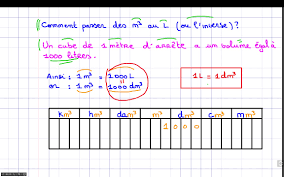 Comment passer des m³ au L (ou l'inverse)?
Un cube de 1 mètre d'arête a un volume égal à
1000 litres.
Ainsi : 1 m³ = 1000 L
or : 1 m³ = 1000 dm³
1L = 1dm³
km³ hm³ dam³ m³ dm³ cm³ mm³
1 0 0 0